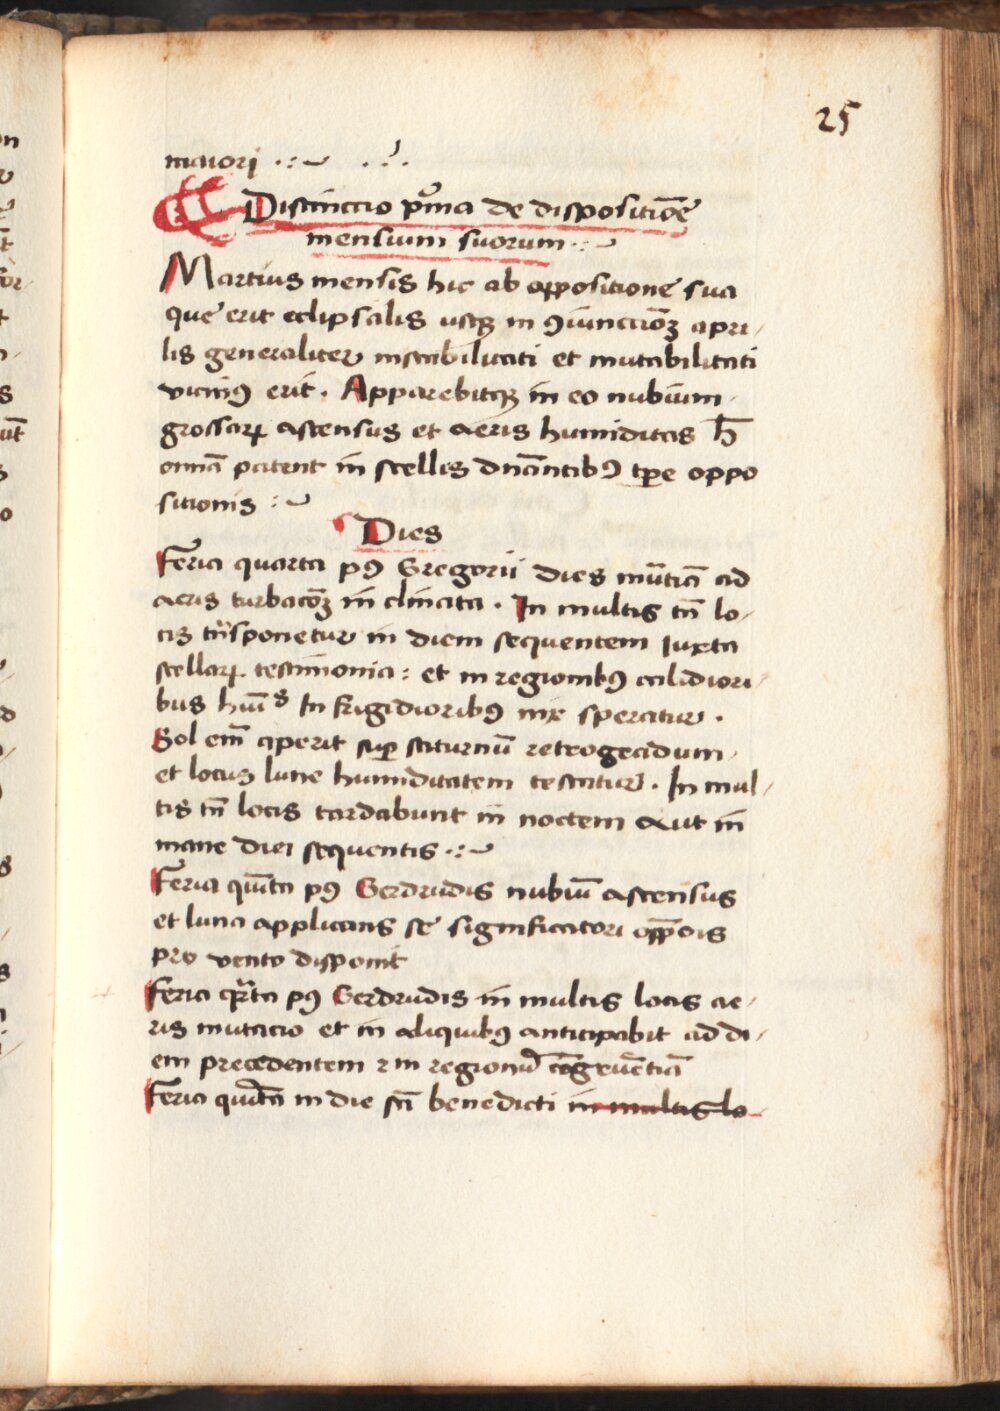 25
maiori
Distinctio p͛ma de dispositiōe
mensium suorum
Martius mensis hic ab oppositione sua
que erit eclipsalis usqꝫ in ꝯiunctiōꝫ apri
lis generaliter instabilitati et mutabilitati
vicinꝰ erit. Apparebitqꝫ in eo nubium
grossaꝝ ascensus et aeris humiditas h̄
omnia patent in stellis dnāntibꝰ tꝑe oppo
sitionis
Dies
Feria quarta pꝰ Gregorii dies ad
aeris turbacōꝫ inclinata. In multis tn̄ lo
cis tn̄sponetur in diem sequentem iuxta
stellaꝝ testimonia: et in regionibꝰ calidiori
bus In frigidioribꝰ nix speratur.
Sol em̄ aperit suꝑ saturnū retrogradum
et locus lune humiditatem testatur. In mul
tis tn̄ locis tardabunt in noctem aut in
mane diei sequentis
Feria quīta pꝰ Gerdrudis nubiū ascensus
et luna applicans se significatori opp̄ōis
pro vento disponit
Feria qr̄ta pꝰ Gerdrudis in multis locis ae
ris mutacio et in aliquibꝰ anticipabit ad di
em precedentem in regionū cōgruētiā
Feria quīta in die scī benedicti in multis lo